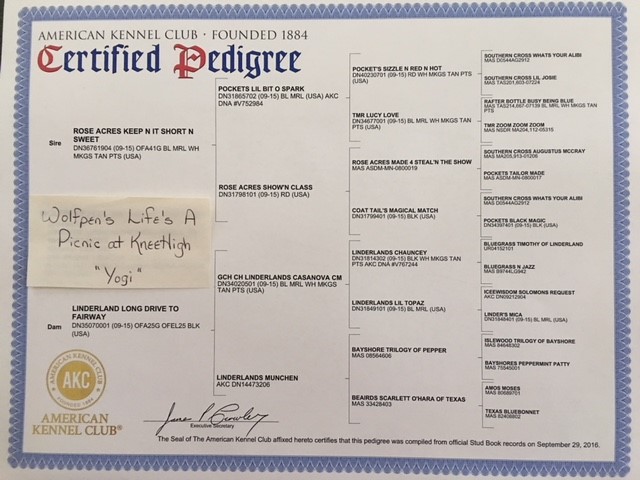 AMERICAN KENNEL CLUB • FOUNDED 1884
Certified Pedigree
Sire
ROSE ACRES KEEP N IT SHORT N
SWEET
DN36761904 (09-15) OFA41G BL MRL WH
MKGS TAN PTS (USA)
Wolfpen's Life's A
Picnic at KneeHigh
"Yogi"
Dam
LINDERLAND LONG DRIVE TO
FAIRWAY
DN35070001 (09-15) OFA25G OFEL25 BLK
(USA)
POCKETS LIL BIT O SPARK
DN31865702 (09-15) BL MRL (USA) AKC
DNA #V752984
ROSE ACRES SHOW'N CLASS
DN31798101 (09-15) RD (USA)
GCH CH LINDERLANDS CASANOVA CM
DN34020501 (09-15) BL MRL WH MKGS TAN
PTS (USA)
LINDERLANDS MUNCHEN
AKC DN14473206
POCKET'S SIZZLE N RED N HOT
DN40230791 (09-15) RD WH MKGS TAN PTS
(USA)
TMR LUCY LOVE
DN34677001 (09-15) BL MRL WH MKGS TAN PTS
(USA)
ROSE ACRES MADE 4 STEAL'N THE SHOW
MAS ASDM-MN-0800019
COAT TAIL'S MAGICAL MATCH
DN31799401 (09-15) BLK (USA)
LINDERLANDS CHAUNCEY
DN31814302 (09-15) BLK WH MKGS TAN
PTS AKC DNA #V767244
LINDERLANDS LIL TOPAZ
DN31849101 (09-15) BL MRL (USA)
BAYSHORE TRILOGY OF PEPPER
MAS 08564606
BEAIRDS SCARLETT O'HARA OF TEXAS
MAS 33428403
SOUTHERN CROSS WHATS YOUR ALIBI
MAS D0544AG2912
SOUTHERN CROSS LIL JOSIE
MAS TAS201,603-07224
RAFTER BOTTLE BUSY BEING BLUE
MAS TAS214,667-07139 BL MRL WH MKGS TAN
PTS
TMR ZOOM ZOOM ZOOM
MAS NSDR MA204,112-05315
SOUTHERN CROSS AUGUSTUS MCCRAY
MAS MA205,913-01206
POCKETS TAILOR MADE
MAS ASDM-MN-0800017
SOUTHERN CROSS WHATS YOUR ALIBI
MAS D0544AG2912
POCKETS BLACK MAGIC
DN34397401 (09-15) BLK (USA)
BLUEGRASS TIMOTHY OF LINDERLAND
UR04152101
BLUEGRASS N JAZZ
MAS B9744LG942
ICEEWISDOM SOLOMONS REQUEST
AKC DN09212904
LINDER'S MICA
DN31848401 (09-15) BL MRL (USA)
ISLEWOOD TRILOGY OF BAYSHORE
MAS 84648302
BAYSHORES PEPPERMINT PATTY
MAS 75545001
AMOS MOSES
MAS 80689701
TEXAS BLUEBONNET
MAS 82408802
AMERICAN KENNEL CLUB
AKC
FOUNDED 1884
AMERICAN
KENNEL CLUB®
Executive Secretary
The Seal of The American Kennel Club affixed hereto certifies that this pedigree was compiled from official Stud Book records on September 29, 2016.